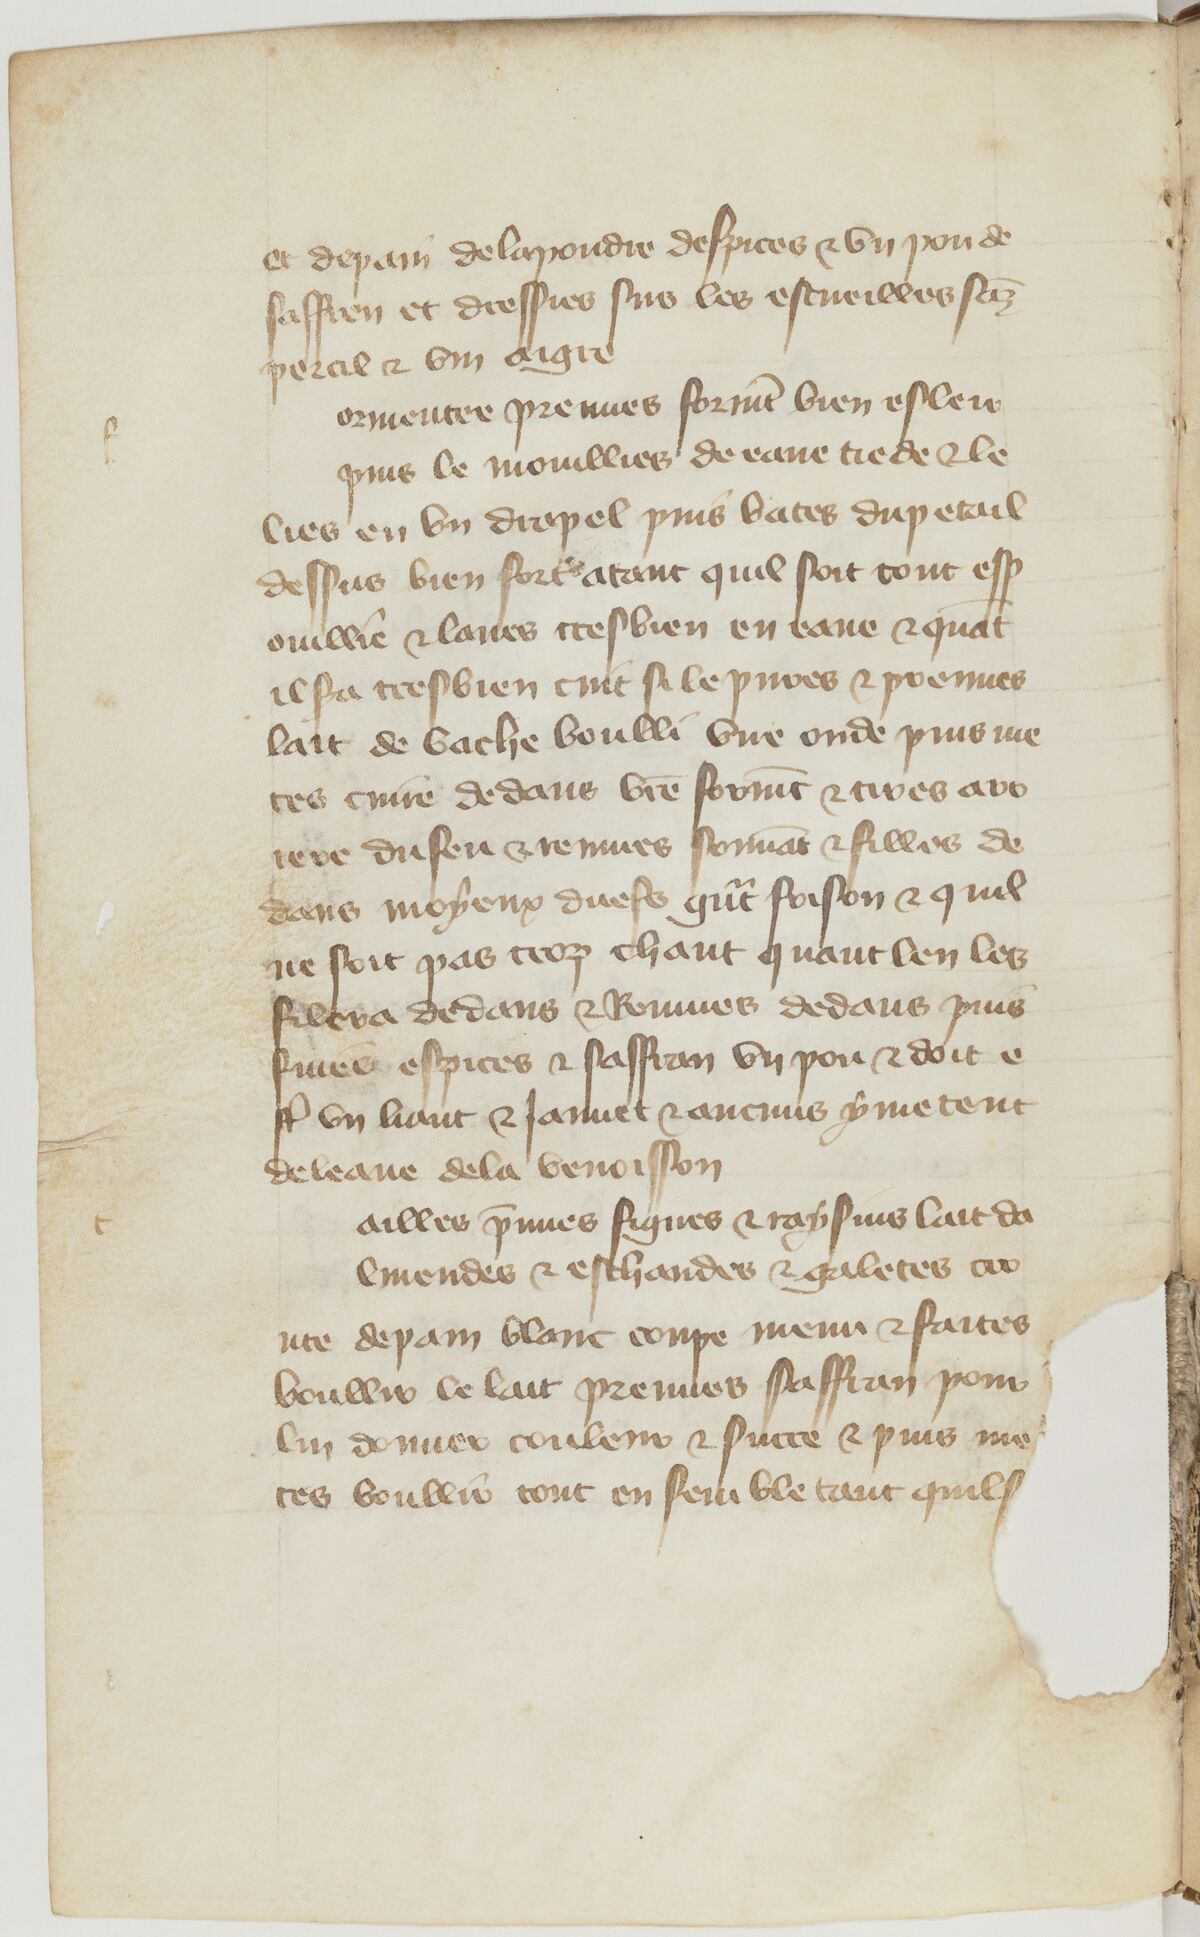 et de pain de la poudre despices & vn pou de
saffren et dressies sus les escueilles sãz
percil & vin aigre
f
ormentee prennes formẽt bien esleu
puis le mouillies de eaue tiede & le
lies en vn drapel puis bates du petail
dessus bien fort atant quil soit tout esp
ouillie & laues tresbien en eaue & quãt
il sa tresbien cuit si le pures & prennes
lait de vache boulli vne onde puis me
tes cuire dedans vr̃e formẽt & tires arr
iere du feu & remues souuãt & filles de
dans moyeux duefs grãt foison & quil
ne soit pas trop chaut quant len les
filera dedans & Remues dedans puis
fines espices & saffran vn pou & doit e
str vn liant & Jaunet & aucuns y metent
de leaue de la venoisson
t
ailles p̃nnes figues & raysins lait da
lmendes & eschaudes & galetes cro
ute de pain blanc coupe menu & faites
boullir le lait prennes saffran pour
lui donner couleur & sucre & puis me
tes boullir tout ensemble tant quil s